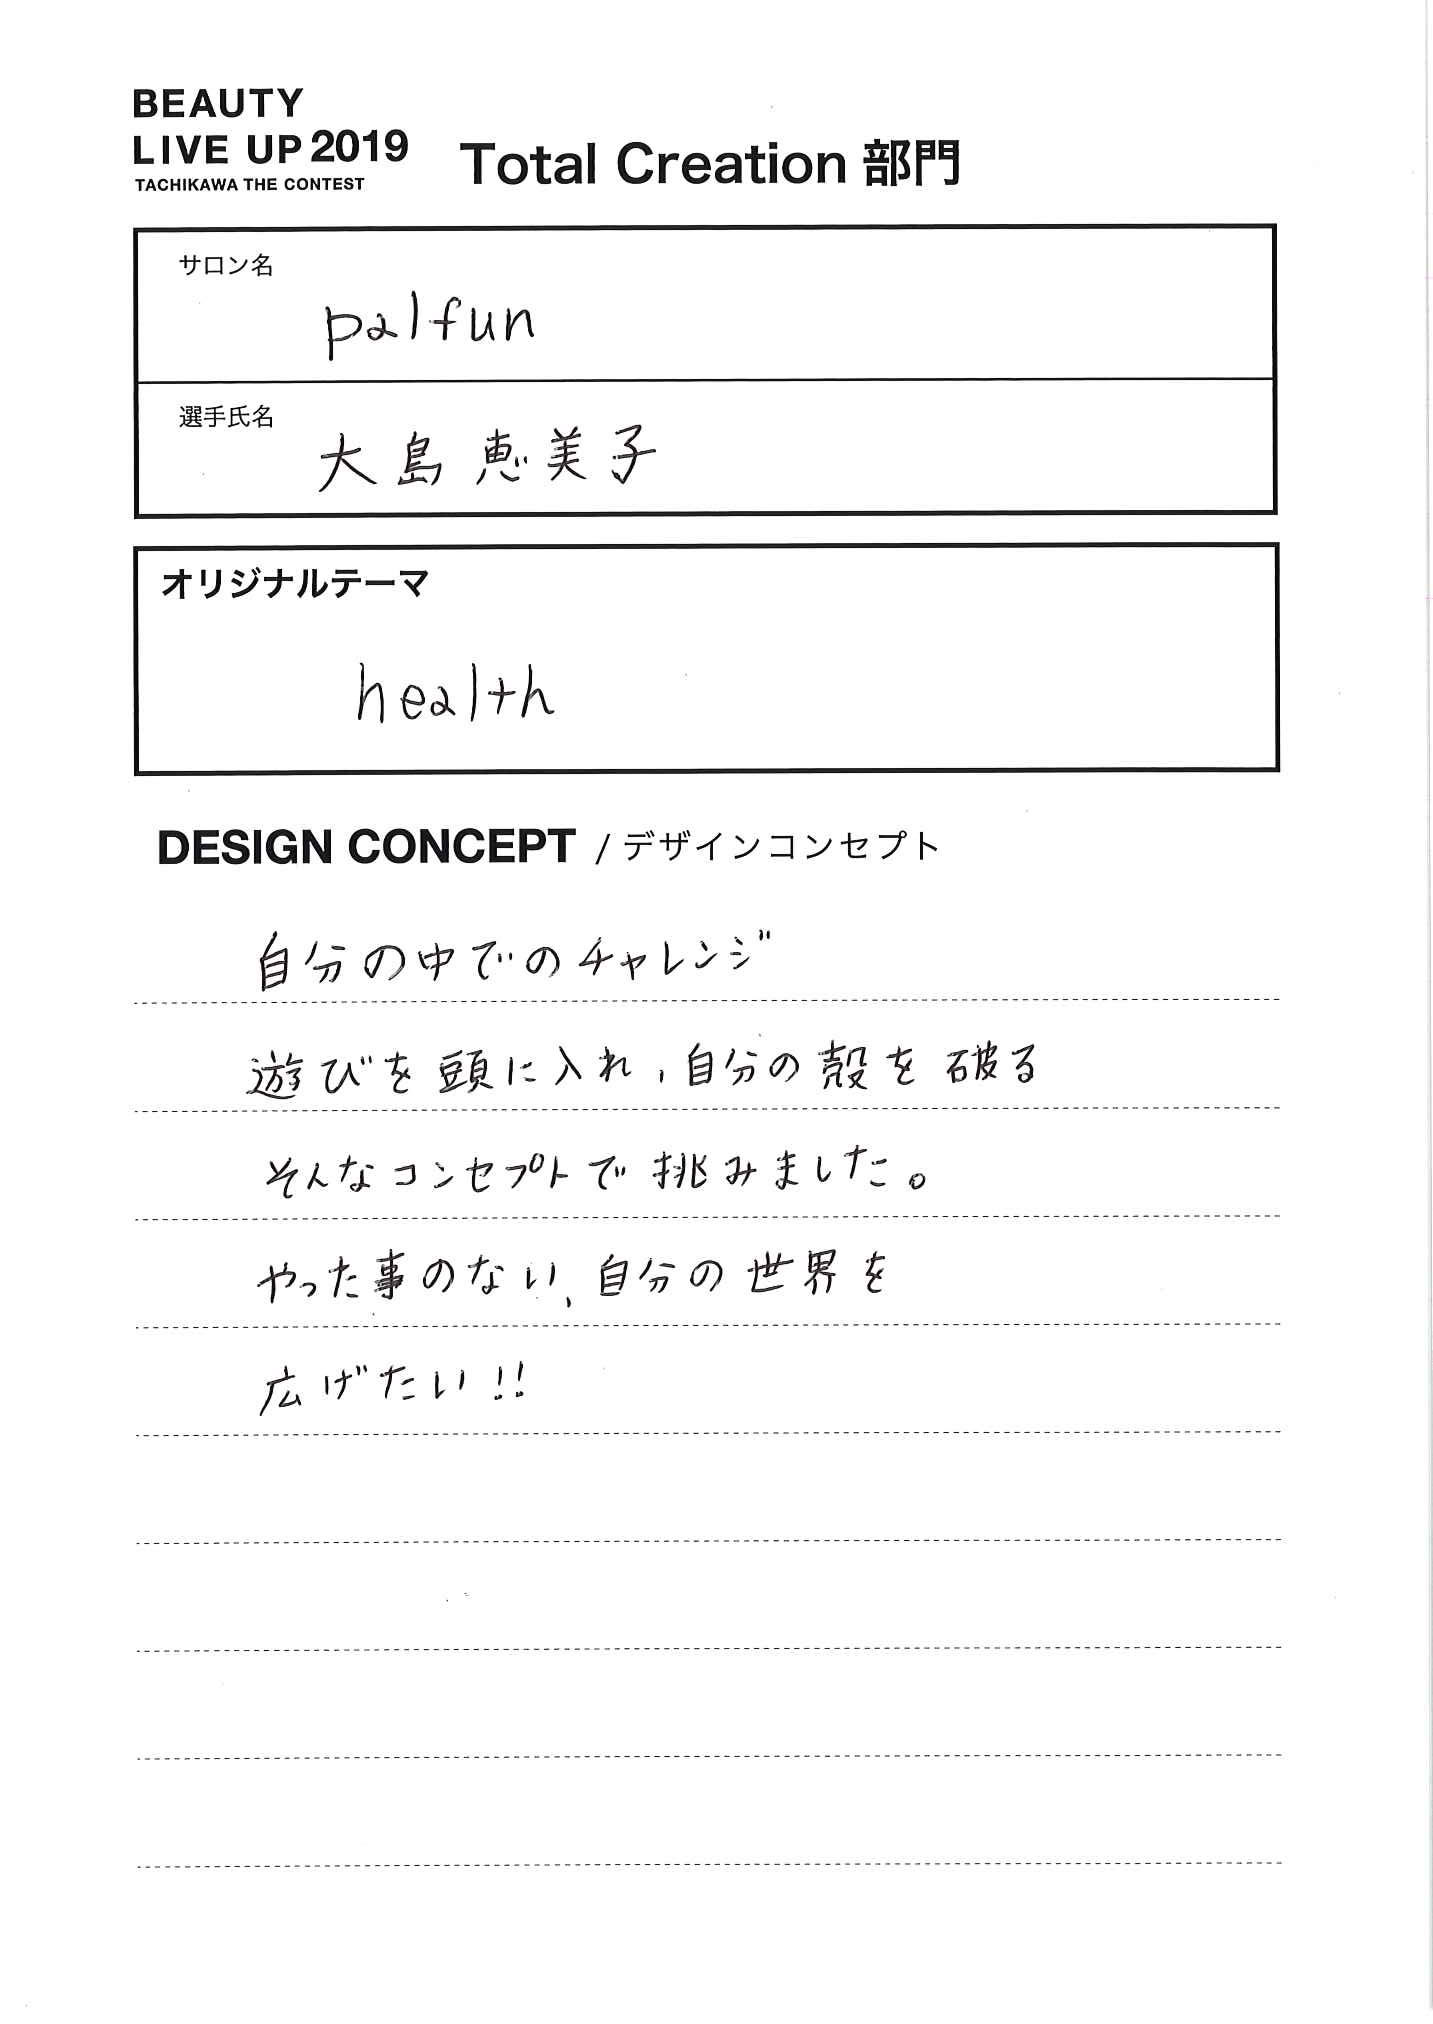 BEAUTY
LIVE UP 2019
TACHIKAWA THE CONTEST
Total Creation 部門
サロン名
palfun
選手氏名
大島 恵美子
オリジナルテーマ
health
DESIGN CONCEPT / デザインコンセプト
自分の中でのチャレンジ
遊びを頭に入れ、自分の殻を破る
そんなコンセプトで挑みました。
やった事のない、自分の世界を
広げたい!!